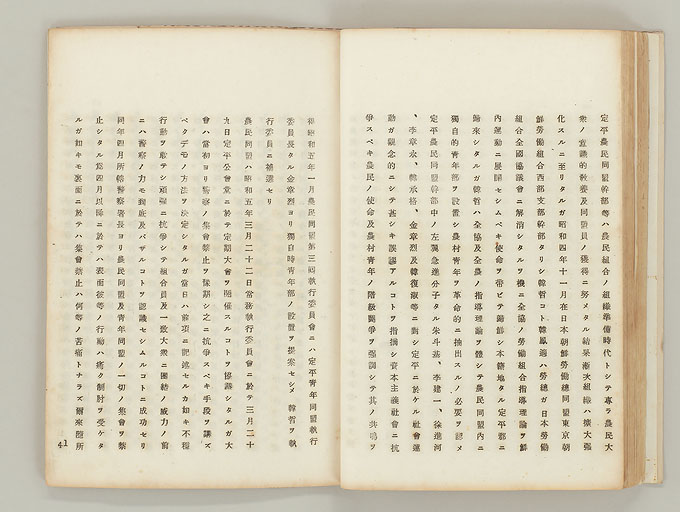 定平農民同盟幹部等ハ農民組合ノ組織準備時代トシテ專ラ農民大
衆ノ意識的教養及同盟員ノ獲得ニ努メタル結果漸次組織ハ擴大强
化スルニ至リタルガ昭和四年十一月在日本朝鮮勞働總同盟東京朝
鮮勞働組合西部支部幹部タリシ韓哲コト韓鳳適ハ勞總ガ日本勞働
組合全國協議會ニ解消シタルヲ機ニ全協ノ勞働組合指導理論ヲ鮮
內運動ニ展開セシムベキ使命ヲ帶ビテ歸鮮シ本籍地タル定平郡ニ
歸來シタルガ韓哲ハ全協及全農ノ指導理論ヲ體シテ農民同盟內ニ
獨自的靑年部ヲ設置シ農村靑年ヲ革命的ニ抽出スルノ必要ヲ認メ
定平農民同盟幹部中ノ左翼急進分子タル朱斗基、李建一、徐進河
、李章永、韓承格、金章烈及韓復淑等ニ對シ定平ニ於ケル社會運
動ガ觀念的ニシテ甚シキ誤謬アルコトヲ指摘シ資本主義社會ニ抗
爭スベキ農民ノ使命及農村靑年ノ階級鬪爭ヲ强調シテ其ノ共鳴ヲ
得昭和五年一月農民同盟第三回執行委員會ニハ定平靑年同盟執行
委員長タル金章烈ヨリ獨自時靑年部ノ設置ヲ提案セシメ韓哲ヲ執
行委員ニ補選セリ
農民同盟ハ昭和五年三月二十二日常務執行委員會ニ於テ三月二十
九日定平公會堂ニ於テ定期大會ヲ開催スルコトヲ協議シタルガ大
會ハ當初ヨリ警察ノ集會禁止ヲ豫期シ之ニ抗爭スベキ手段ヲ講ズ
ベクデモノ方法ヲ決定シタルガ當日ハ前項ニ記述セルカ如キ不穩
行動ヲ敢テシ頑强ニ抗爭シテ組合員及一般大衆ニ團結ノ威力ノ前
ニハ警察ノ力モ到底及バザルコトヲ認識セシムルコトニ成功セリ
同年四月所轄警察署長ヨリ農民同盟及靑年同盟ノ一切ノ集會ヲ禁
止シタル爲四月以降ニ於テハ表面彼等ノ行動ハ痛ク制肘ヲ受ケタ
ルガ如キモ裏面ニ於テハ集會禁止ハ何等ノ苦痛トナラズ爾來隨所
41